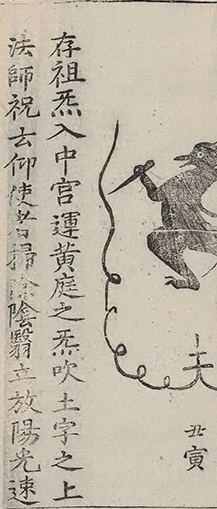 存祖炁入中宫運黄庭之炁吹土字之上
法師祝云仰使者掃除陰翳立放陽光速
丑寅